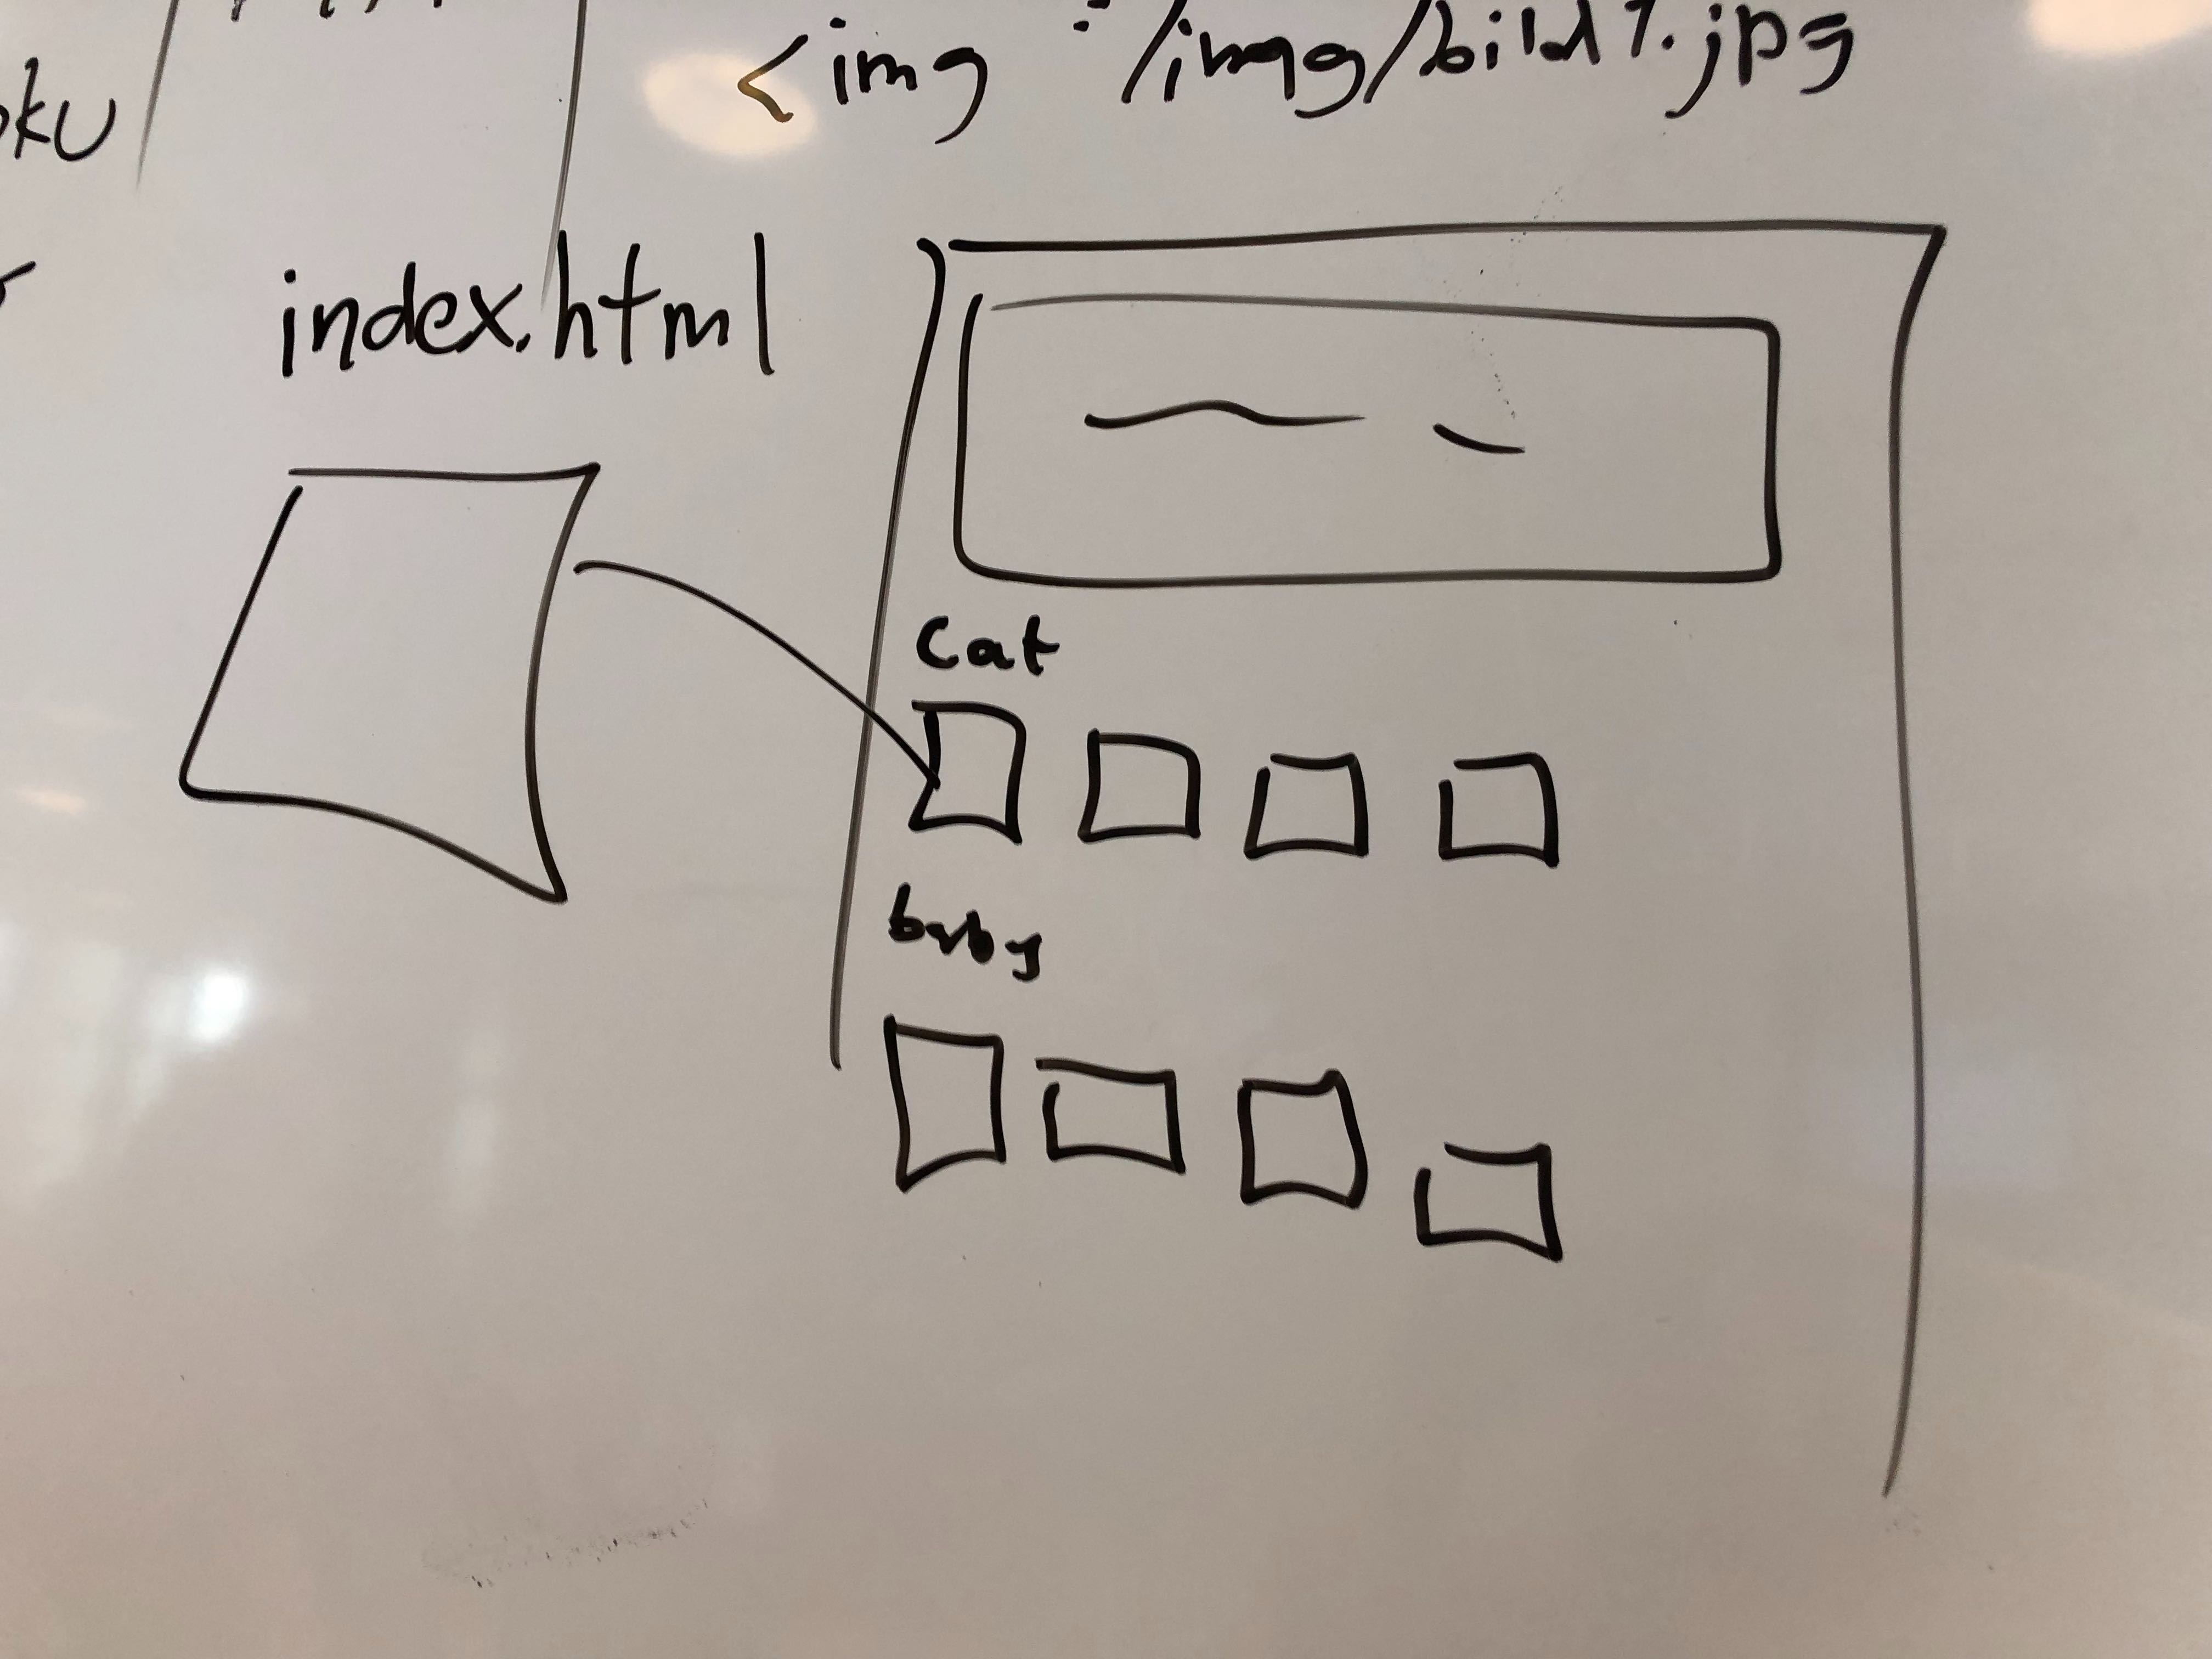 <img /img/bild1.jpg
index.html
Cat
baby